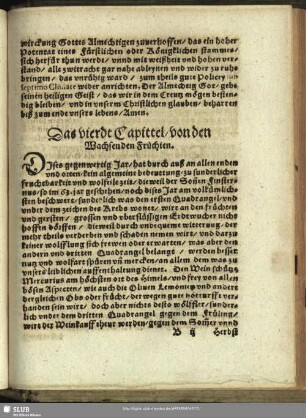 wirckung Gottes Almechtigen zuuerhoffen / das ein hoher
Potentat eines Fürstlichen oder Königklichen stammes /
sich herfür thun werde / vnnd mit weißheit vnd hohen ver-
stand / alle zwitracht gar nahe ableynen vnd wider zu ruhe
bringen / das vnrühig ward / zum theils gute Policey
septimo Climate wider anrichten. Der Almechtig Got / gebe
seinen heiligen Geist / das wir in dem Creutz mögen besten-
dig bleiben / vnd in vnserm Christlichen glauben / beharren
biß zum ende vnsers lebens / Amen.
Das vierdt Capittel / von den
Wachsenden Früchten.
Dises gegenwertig Jar / hat durch auß an allen enden
vnd orten / kein algemeine bedeutung / zu sunderlicher
fruchtbarkeit vnd wolfeile zeit / dieweil der Sonen Finsternus /
so im 63. jar geschehen / noch dises Jar am volkümlich-
sten beschwert / sunderlich was den ersten Quadrangel / vnd
vnder dem zeichen des Krebs wonet / wirt an den früchten
vnd gersten / grossen vnd vberflüssigen Erdtwucher nichs
hoffen dörffen / dieweil durch vnbequeme witterung / der
mehr theils verderben vnd schaden nemen wirt / vnd darzu
keiner wolffeilung sich frewen oder erwarten / was aber den
andern vnd dritten Quadrangel belangt / werden besser
nutz vnd wolfart spüren vnd mercken / an allem dem was zu
vnsere leiblichen auffenthaltung dienet. Den Wein schlägt
Mercurius am höchsten ort des Himels / vnd frey von allen
bösen Aspecten / wie auch die Oliuen Lemonien vnd andere
dergleichen Obs oder frücht / der wegen gute hoffnung ver-
handen sein wirt / doch aber nichts desto wölffler / sunder-
lich vnder dem dritten Quadrangel gegen dem Früling /
wirt der Weinkauff theur werden / gegen dem Sommer vnnd
B ij Herbst
SLUB
Wir führen Wissen.